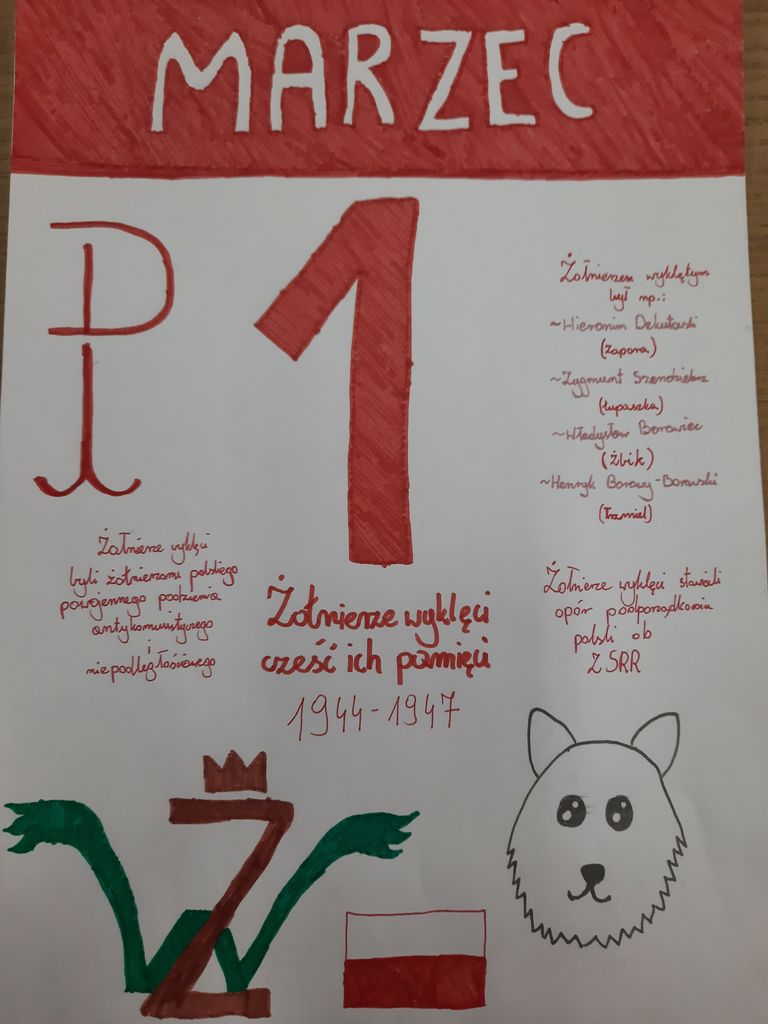 MARZEC
1
Żołnierzem wyklętym
był np.:
~Hieronim Dekutowski
(Zapora)
~Zygmunt Szendzielarz
(Łupaszka)
~Władysław Borowiec
(Żbik)
~Henryk Borowy-Borowski
(Trzmiel)
Żołnierze wyklęci
byli żołnierzami polskiego
powojennego podziemia
antykomunistycznego
i
niepodległościowego
Żołnierze wyklęci
cześć ich pamięci
1944-1947
Żołnierze wyklęci stawiali
opór podporządkowania
polski ob
ZSRR